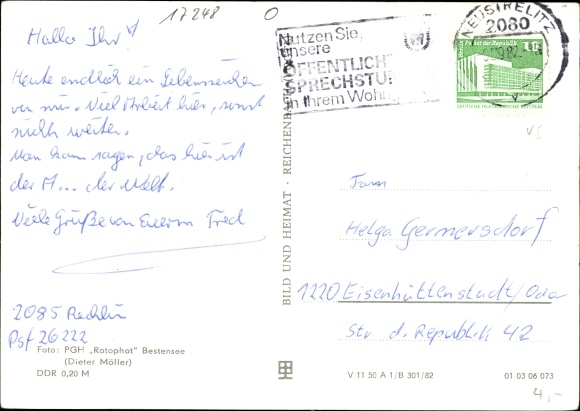 17248
Hallo Ihr!
Heute endlich ein Lebenszeichen
von mir. Viel Arbeit hier, sonst
nichts weiter.
Man kann sagen, das hier ist
der A... der Welt.
Viele Grüße von Eurem Fred
2085 Rechlin
Psf 26222
Foto: PGH „Rotophot" Bestensee
(Dieter Möller)
DDR 0,20 M
BILD UND HEIMAT · REICHENBACH
Nutzen Sie,
unsere
ÖFFENTLICH
SPRECHSTU
in Ihrem Wohn
NEUSTRELITZ
2080
Palast der Republik
10
Fam
Helga Germersdorf
1220 Eisenhüttenstadt/Oder
Str d. Republik 42
V 11 50 A 1/B 301/82
01 03 06 073
4,-